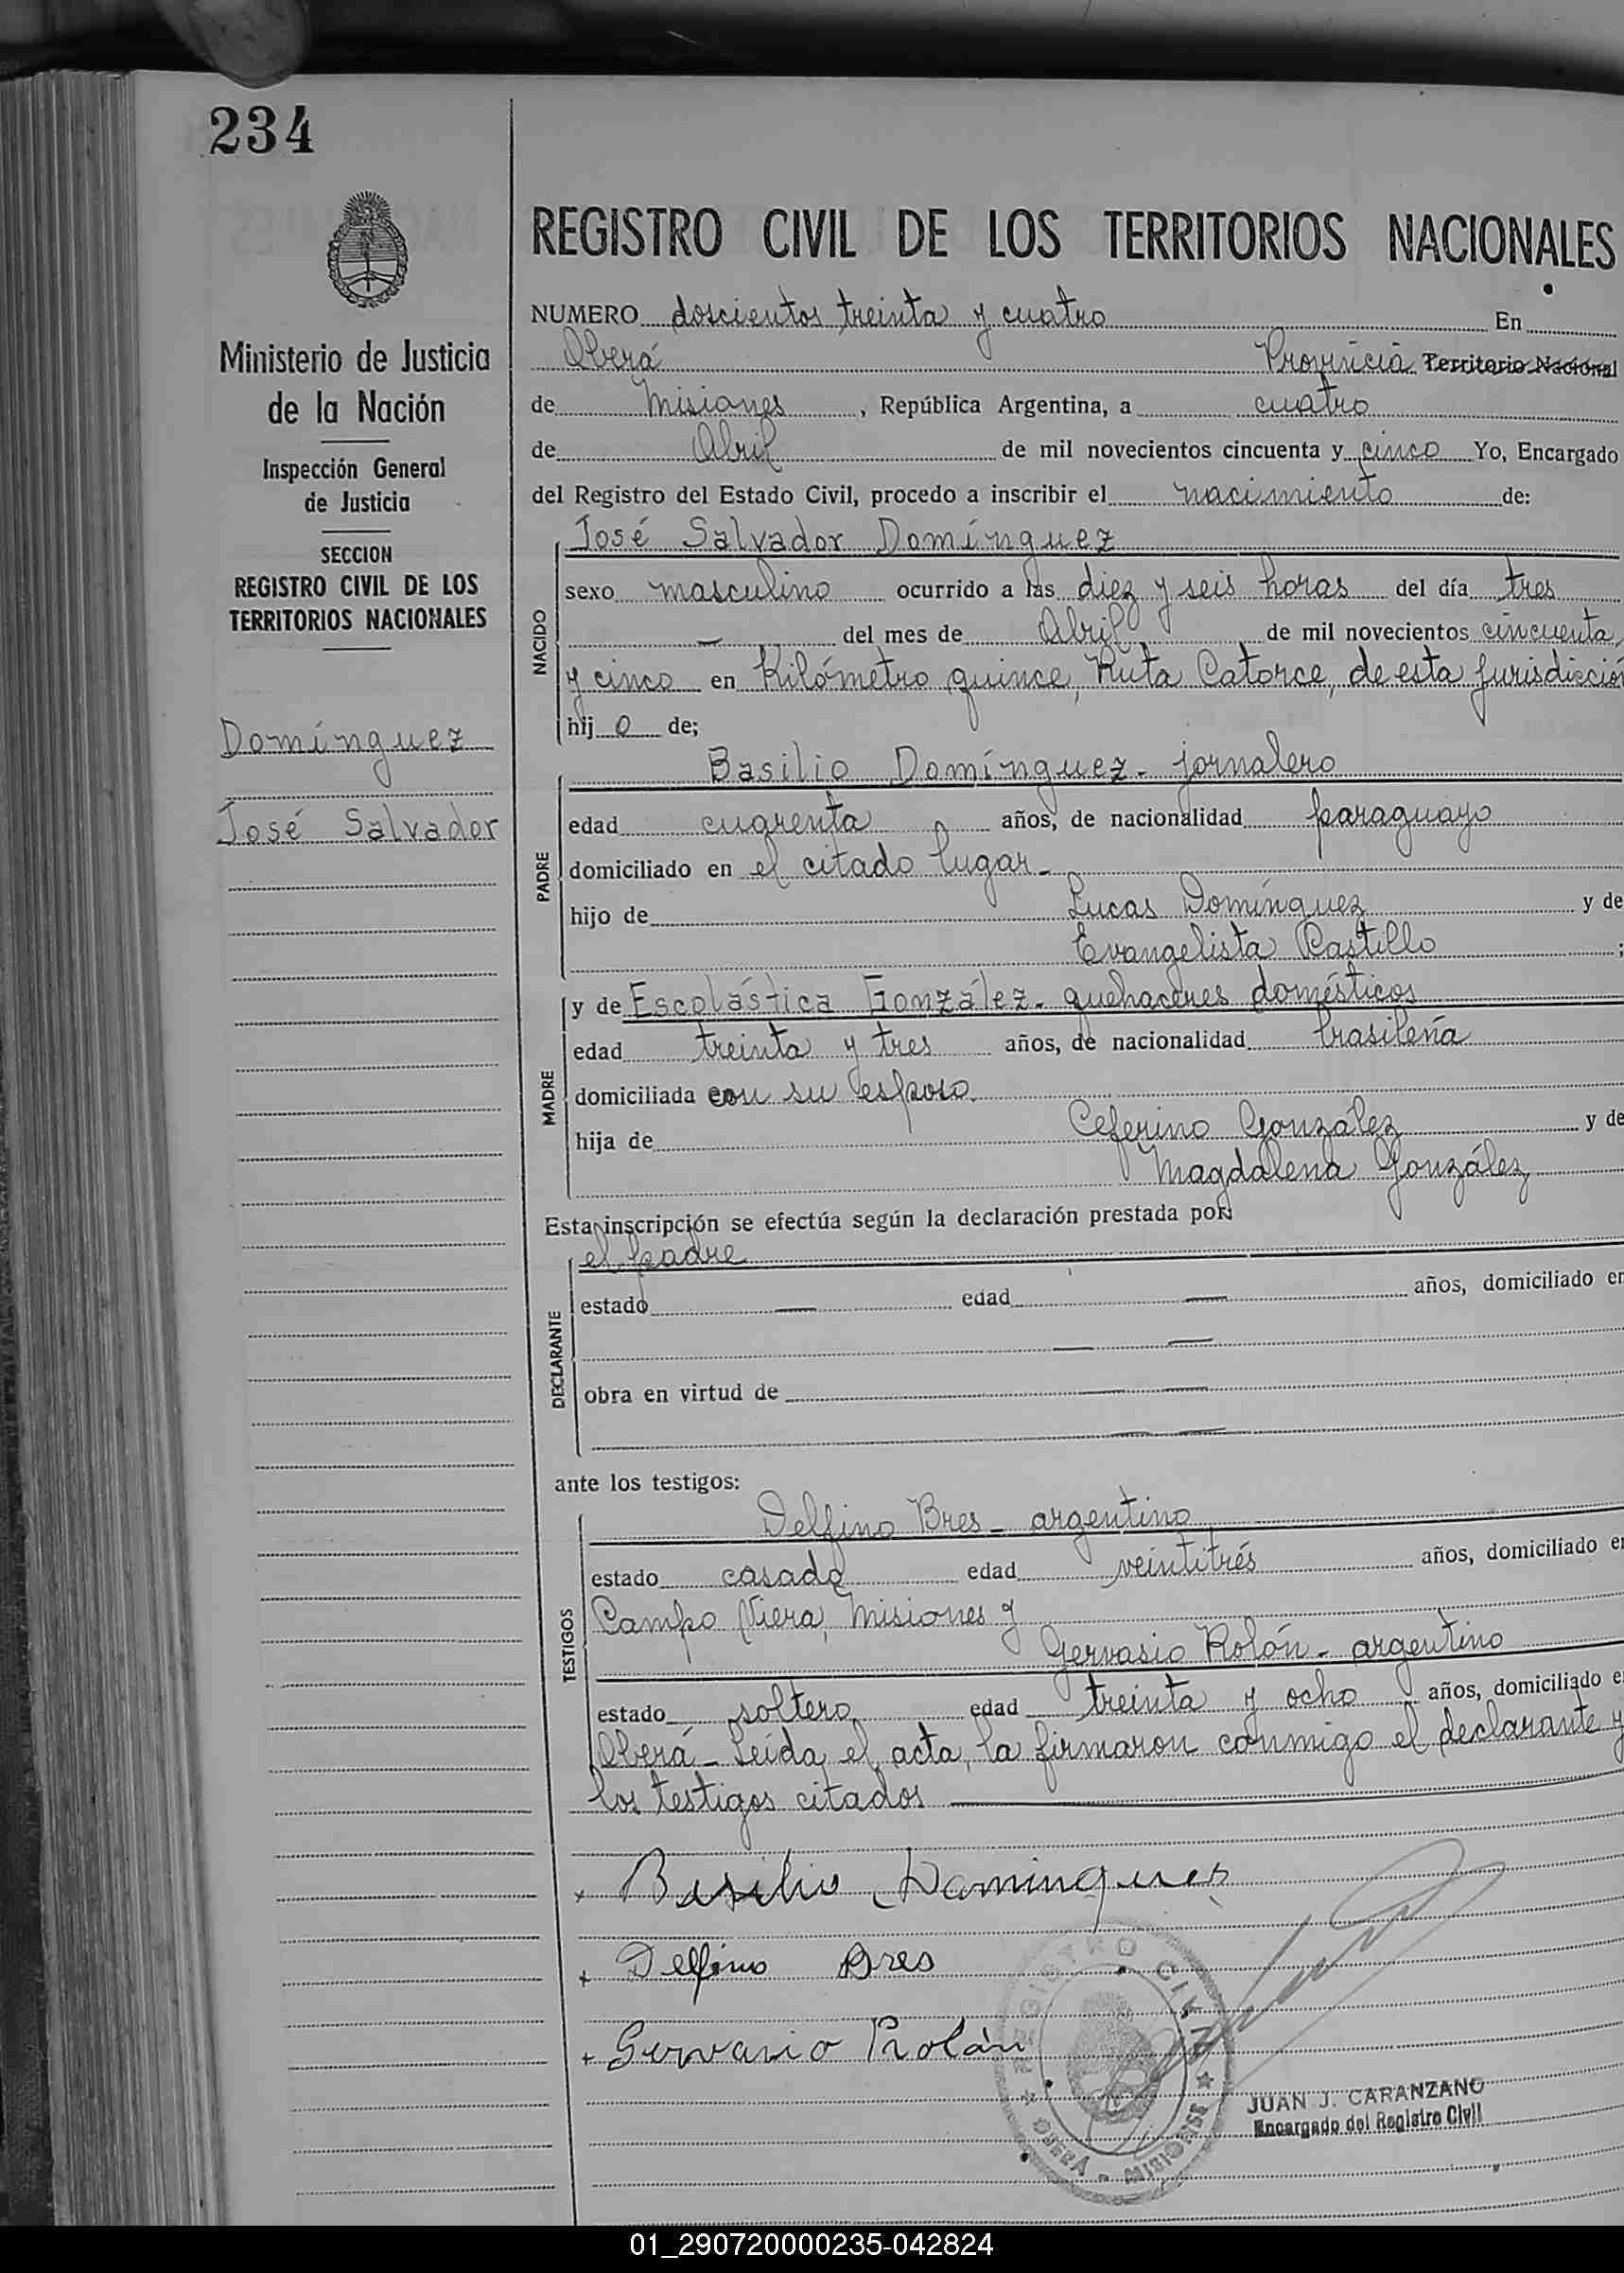 234
Ministerio de Justicia
de la Nación
Inspección General
de Justicia
SECCION
REGISTRO CIVIL DE LOS
TERRITORIOS NACIONALES
Domínguez
José Salvador
REGISTRO CIVIL DE LOS TERRITORIOS NACIONALES
NUMERO doscientos treinta y cuatro En
Oberá Provincia Territorio Nacional
de Misiones, República Argentina, a cuatro
de Abril de mil novecientos cincuenta y cinco Yo, Encargado
del Registro del Estado Civil, procedo a inscribir el nacimiento de:
NACIDO
José Salvador Domínguez
sexo masculino ocurrido a las diez y seis horas del día tres
— del mes de Abril de mil novecientos cincuenta
y cinco en Kilómetro quince, Ruta Catorce, de esta jurisdicción
hij o de;
PADRE
Basilio Domínguez - jornalero
edad cuarenta años, de nacionalidad paraguayo
domiciliado en el citado lugar -
hijo de Lucas Domínguez y de
Evangelista Castillo ;
MADRE
y de Escolástica González - quehaceres domésticos
edad treinta y tres años, de nacionalidad brasileña
domiciliada con su esposo.
hija de Ceferino González y de
Magdalena González
Esta inscripción se efectúa según la declaración prestada por:
DECLARANTE
el padre
estado — edad — años, domiciliado en
— —
obra en virtud de — —
— —
ante los testigos:
TESTIGOS
Delfino Bres - argentino
estado casado edad veintitrés años, domiciliado en
Campo Viera, Misiones y
Gervasio Rolón - argentino
estado soltero edad treinta y ocho años, domiciliado e
Oberá - Leída el acta, la firmaron conmigo el declarante y
los testigos citados —
x Basilio Domingues
+ Delfino Bres
+ Gervasio Rolón
REGISTRO CIVIL
OBERA - MISIONES
JUAN J. CARANZANO
Encargado del Registro Civil
01_290720000235-042824